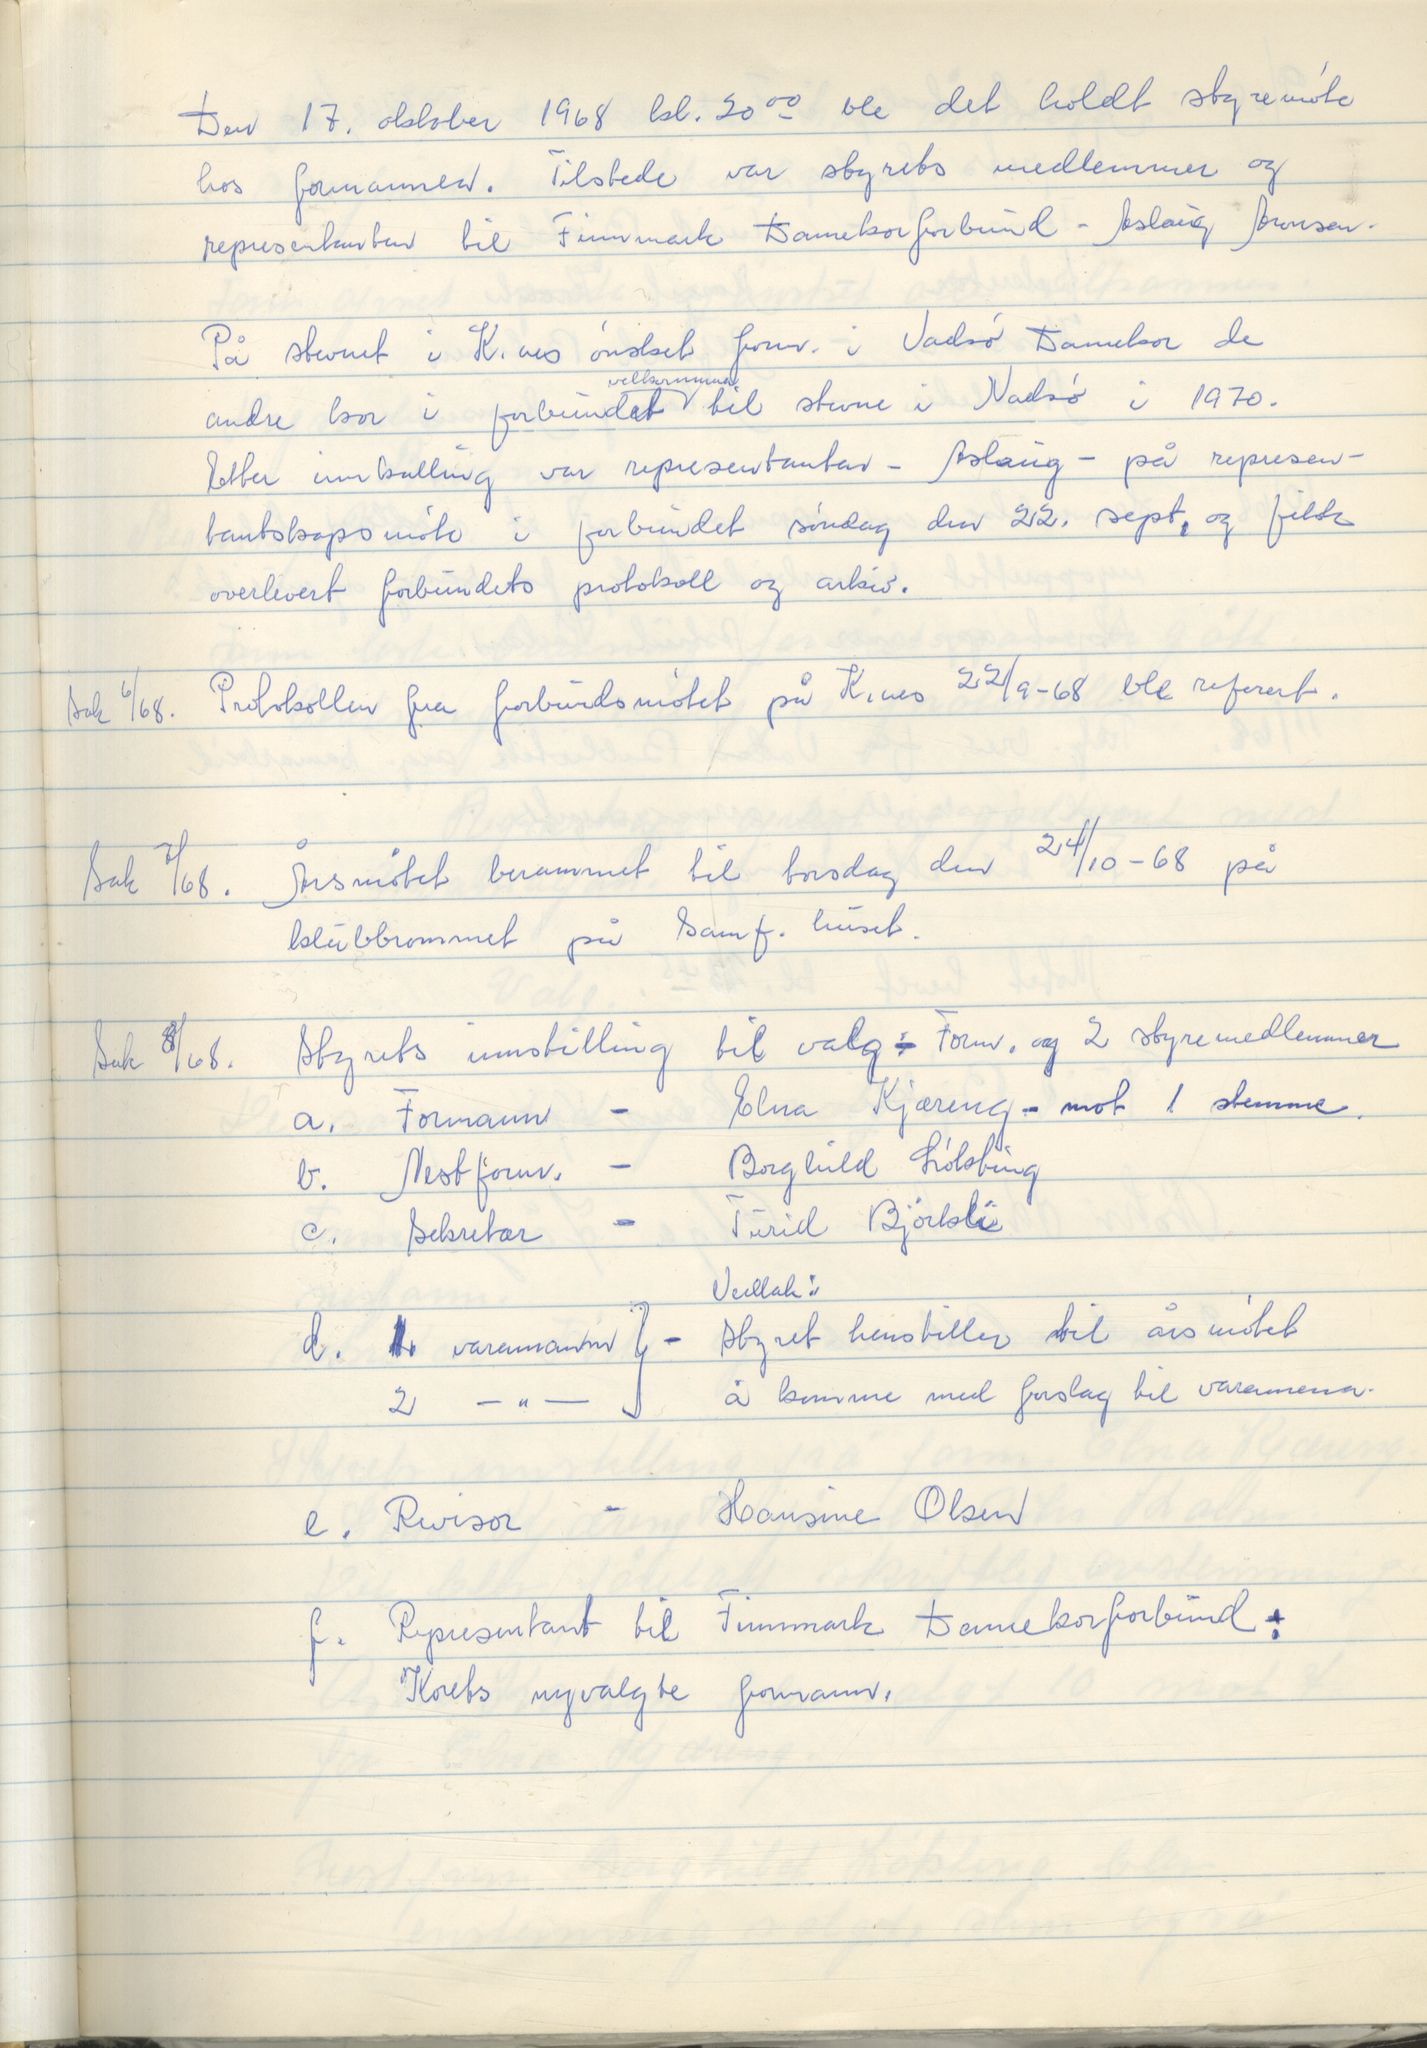 Den 17. oktober 1968 kl. 20⁰⁰ ble det holdt styremøte
hos formannen. Tilstede var styrets medlemmer og
representanten til Finnmark Damekorforbund - Aslaug Aronsen.
På stevnet i K.nes ønsket form. i Vadsø Damekor de
andre kor i forbundet velkommen til stevne i Vadsø i 1970.
Etter innkalling var representanten - Aslaug - på represen-
tantskapsmøte i forbundet søndag den 22. sept. og fikk
overlevert forbundets protokoll og arkiv.
Sak 6/68. Protokollen fra forbundsmøtet på K.nes 22/9-68 ble referert.
Sak 7/68. Årsmøtet berammet til torsdag den 24/10-68 på
klubbrommet på Samf. huset.
Sak 8/68. Styrets innstilling til valg: Form. og 2 styremedlemmer
a. Formann - Elna Kjæreng - mot 1 stemme.
b. Nestform. - Borghild
c. Sekretær - Turid Bjørkli
Vedtak:
d. 1. varamann } - Styret henstiller til årsmøtet
2 — " — å komme med forslag til varamenn.
e. Revisor - Hansine Olsen
f. Representant til Finnmark Damekorforbund:
Korets nyvalgte formann.